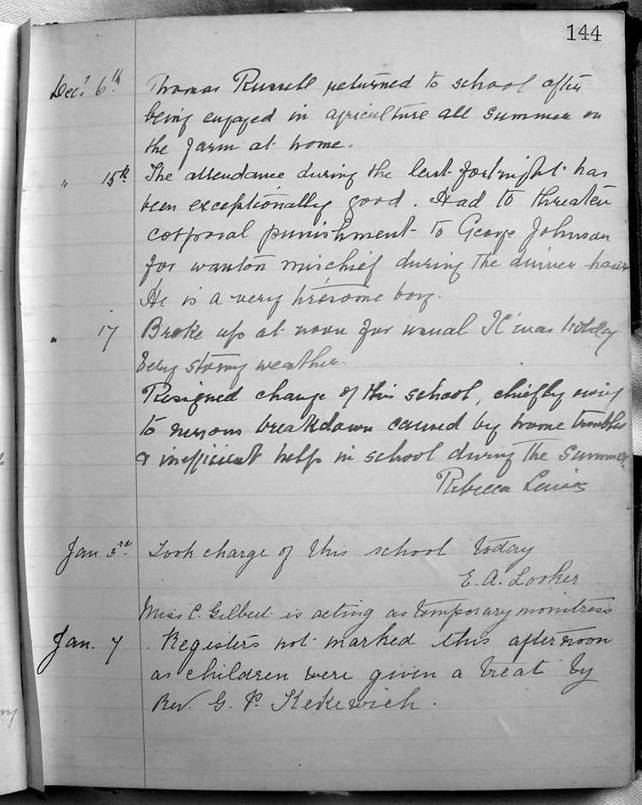 144
Decr 6th Thomas Russell returned to school after
being engaged in agriculture all summer on
the farm at home.
" 15th The attendance during the last fortnight has
been exceptionally good. Had to threaten
corporal punishment to George Johnson
for wanton mischief during the dinner hour
He is a very tiresome boy.
" 17 Broke up at noon for usual Xmas holiday
Very stormy weather.
Resigned charge of this school, chiefly owing
to nervous breakdown caused by home troubles
& inefficient help in school during the summer
Rebecca Lewis
Jan 3rd. Took charge of this school today
E. A. Looker
Miss C. Gilbert is acting as temporary monitress
Jan. 7 . Registers not marked this afternoon
as children were given a treat by
Rev. G. P. Kekewich.